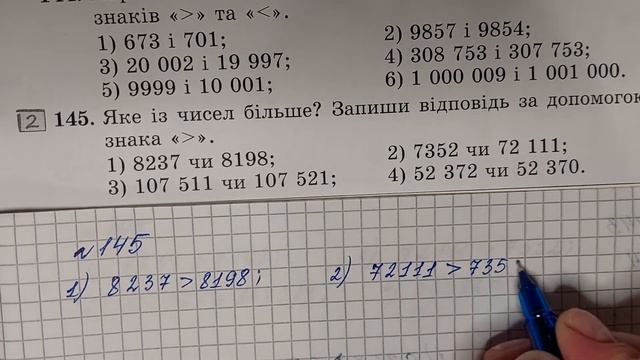 знаків «>» та «<».
1) 673 і 701; 2) 9857 і 9854;
3) 20 002 і 19 997; 4) 308 753 і 307 753;
5) 9999 і 10 001; 6) 1 000 009 і 1 001 000.
2 145. Яке із чисел більше? Запиши відповідь за допомогою
знака «>».
1) 8237 чи 8198; 2) 7352 чи 72 111;
3) 107 511 чи 107 521; 4) 52 372 чи 52 370.
№145
1) 8237 > 8198; 2) 72111 > 735